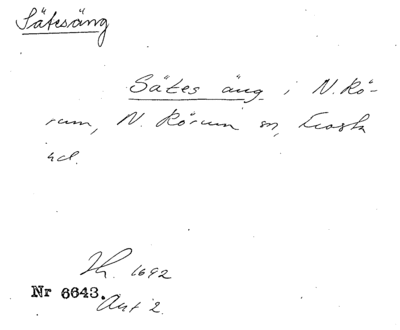 Sätesäng
Sätes äng i N. Rö-
rum, N. Rörum sn, Frosta
hd.
Th. 1692
Nr 6643. Akt 2.